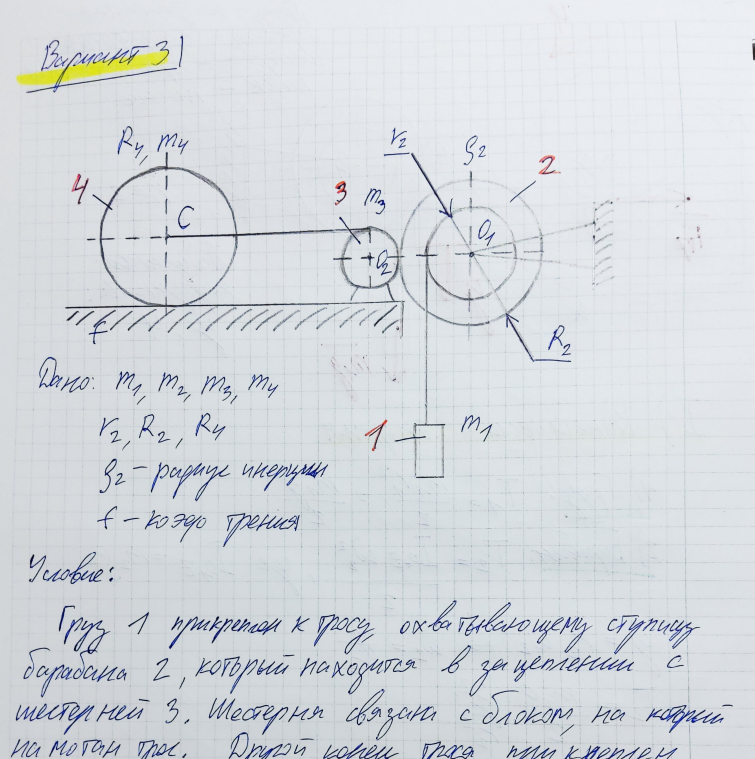 Вариант 3
R4, m4
r2
ρ2
2
4
3
m3
C
O1
O2
f
R2
Дано: m1, m2, m3, m4
1
m1
r2, R2, R4
ρ2 – радиус инерции
f – коэф трения
Условие:
Груз 1 прикреплен к тросу, охватывающему ступицу
барабана 2, который находится в зацеплении с
шестерней 3. Шестерня связана с блоком, на который
намотан трос. Другой конец троса прикреплен